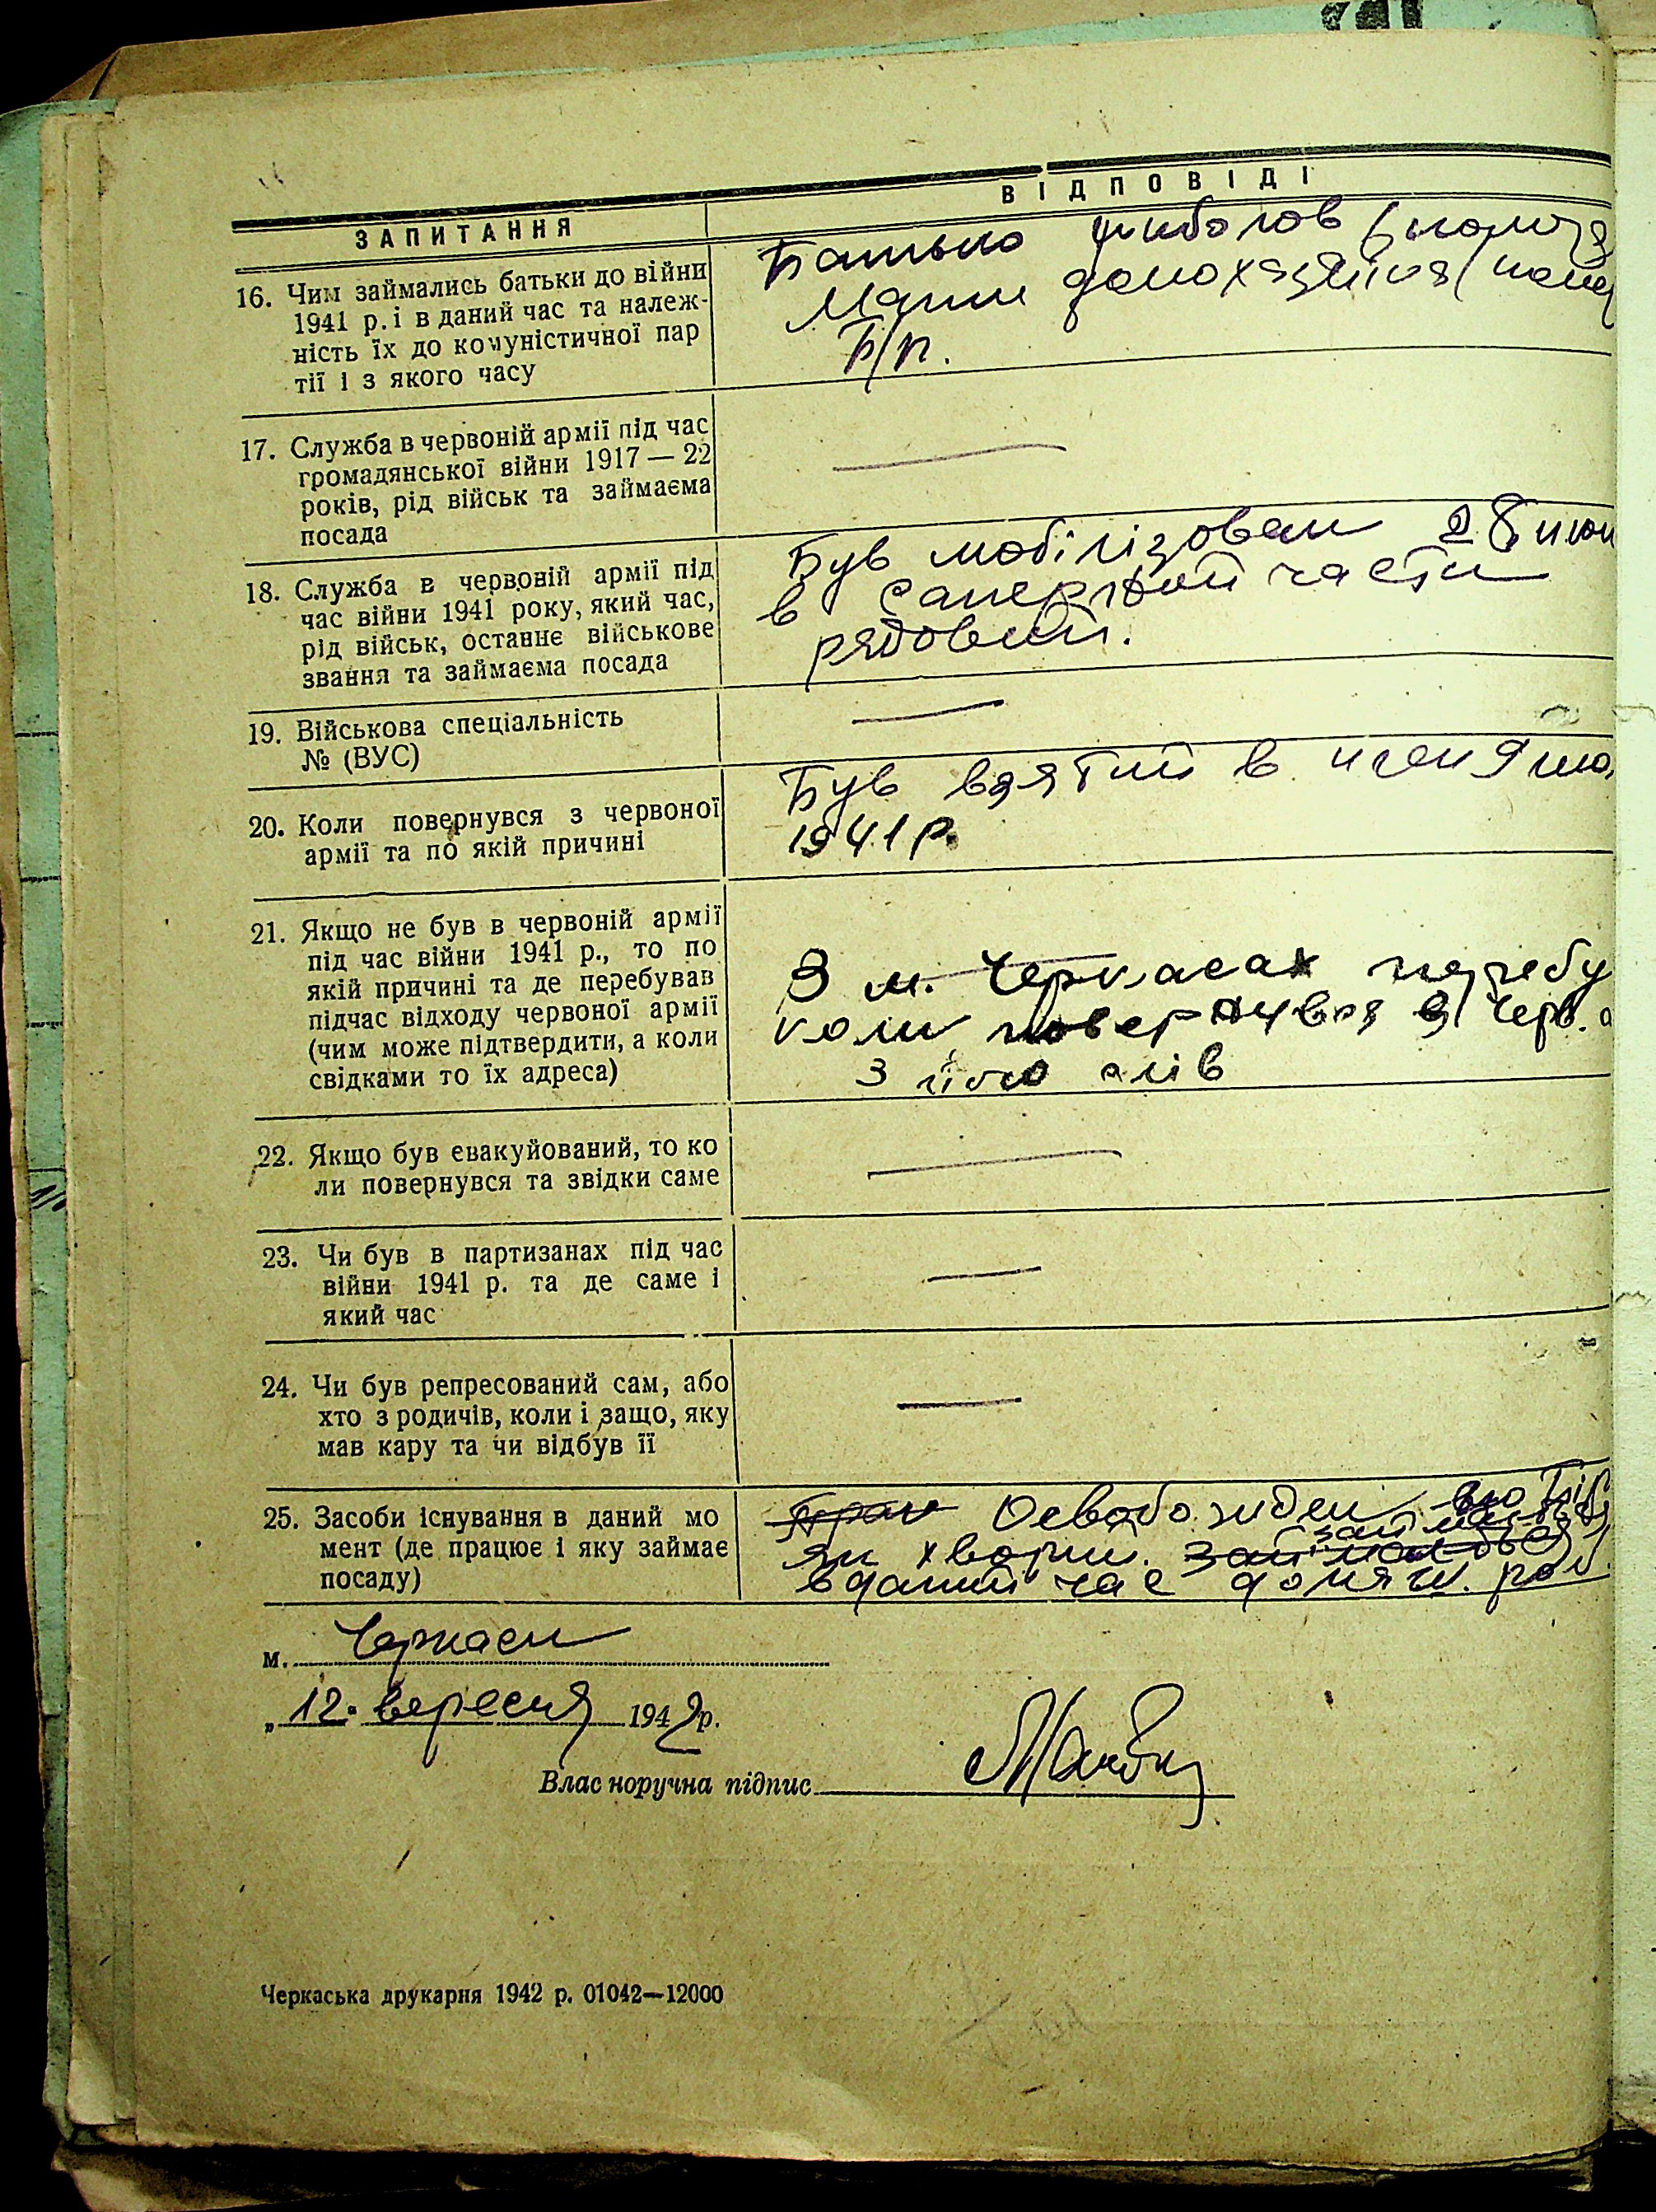 ЗАПИТАННЯ
ВІДПОВІДІ
16. Чим займались батьки до війни
1941 р. і в даний час та належ-
ність їх до комуністичної пар
тії і з якого часу
Батько рибалов
Мати домохазяйка
Б/п.
17. Служба в червоній армії під час
громадянської війни 1917 — 22
років, рід військ та займаєма
посада
18. Служба в червоній армії під
час війни 1941 року, який час,
рід військ, останнє військове
звання та займаєма посада
Був мобілізован 28 июн
в саперной части
рядовий.
19. Військова спеціальність
№ (ВУС)
20. Коли повернувся з червоної
армії та по якій причині
Був взятий в плен 9
1941 р.
21. Якщо не був в червоній армії
під час війни 1941 р., то по
якій причині та де перебував
підчас відходу червоної армії
(чим може підтвердити, а коли
свідками то їх адреса)
З м. Черкасах перебу
коли повернувся з Черв. а
З його слів
22. Якщо був евакуйований, то ко
ли повернувся та звідки саме
23. Чи був в партизанах під час
війни 1941 р. та де саме і
який час
24. Чи був репресований сам, або
хто з родичів, коли і защо, яку
мав кару та чи відбув її
25. Засоби існування в даний мо
мент (де працює і яку займає
посаду)
Освобожден
як хворий.
в даний час домаш. роб.
м. Черкаси
„12" вересня 1942 р.
Власноручна підпис
Черкаська друкарня 1942 р. 01042—12000